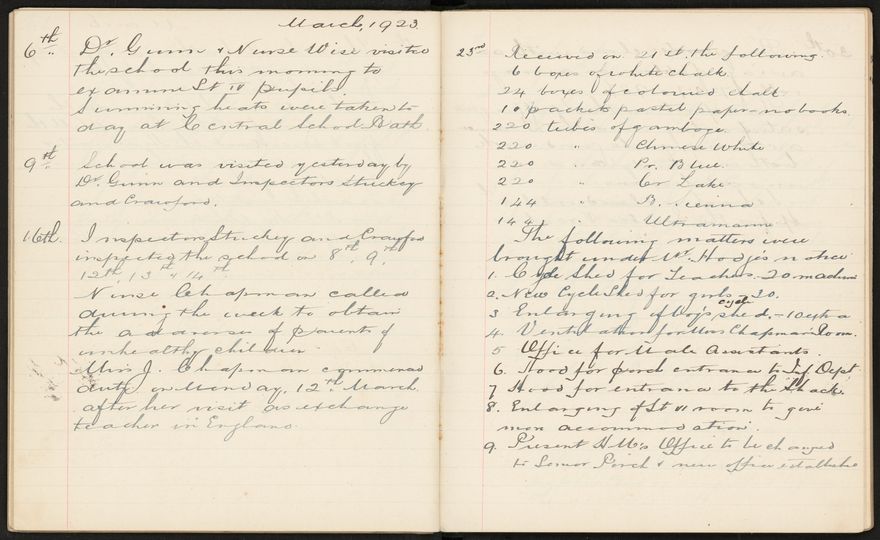 March, 1923
6th. Dr. Gunn & Nurse Wise visited
the school this morning to
examine St IV pupils.
Swimming heats were taken to
day at Central School Bath.
9th. School was visited yesterday by
Dr. Gunn and Inspectors Stuckey
and Crawford.
16th. Inspectors Stuckey and Crawford
inspected the school on 8th, 9th,
12th, 13th & 14th
Nurse Chapman called
during the week to obtain
the addresses of parents of
unhealthy children
Miss J. Chapman commenced
duty on Monday, 12th March
after her visit as exchange
teacher in England.
23rd Received on 21st. the following
6 boxes of white chalk
24 boxes of coloured chalk
10 packets pastel paper - no books
220 tubes of gamboge
220 " Chinese White
220 " Pr. Blue
220 " Cr Lake
144 " B. Sienna
144 " Ultramarine
The following matters were
brought under Mr. Hodge's notice
1. Cycle Shed for Teachers - 20 machines
2. New Cycle Shed for girls - 30.
3 Enlarging of Boy's cycle shed, - 10 extra
4. Ventilation for Miss Chapman's Room.
5 Office for Male Assistants.
6. Hood for porch entrance to Inf. Dept.
7 Hood for entrance to the Shack.
8. Enlarging of St VI room to give
more accommodation.
9. Present H M's Office to be changed
to Senior Porch & new office established